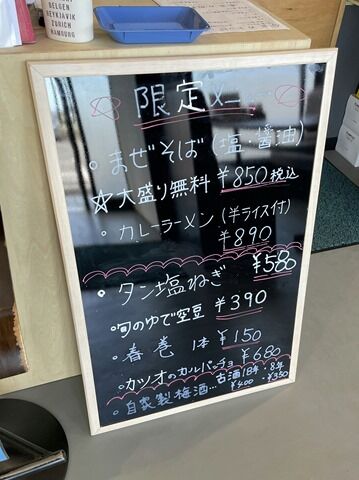 BELGEN
REYKJAVIK
ZÜRICH
HAMBURG
限定メニュー
・まぜそば(塩・醤油)
☆大盛り無料 ¥850税込
・カレーラーメン(半ライス付)
¥890
・タン塩ねぎ ¥580
・旬のゆで空豆 ¥390
・春巻 1本 ¥150
・カツオのカルパッチョ ¥680
・自家製梅酒…古酒18年・8年
¥400 ・¥350